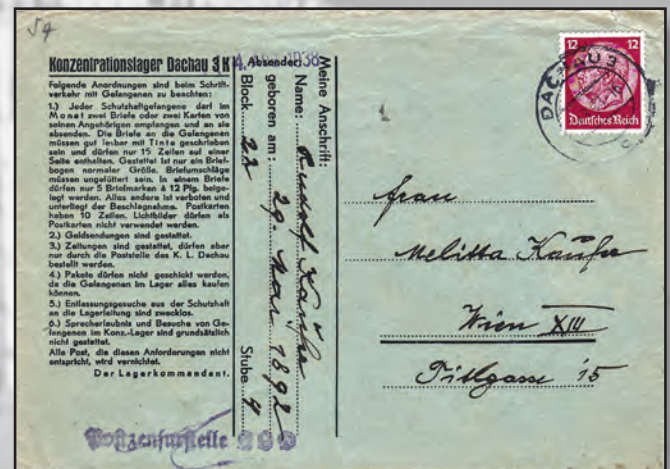 59
Konzentrationslager Dachau 3 K
Folgende Anordnungen sind beim Schrift-
verkehr mit Gefangenen zu beachten:
1.) Jeder Schutzhaftgefangene darf im
Monat zwei Briefe oder zwei Karten von
seinen Angehörigen empfangen und an sie
absenden. Die Briefe an die Gefangenen
müssen gut lesbar mit Tinte geschrieben
sein und dürfen nur 15 Zeilen auf einer
Seite enthalten. Gestattet ist nur ein Brief-
bogen normaler Größe. Briefumschläge
müssen ungefüttert sein. In einem Briefe
dürfen nur 5 Briefmarken à 12 Pfg. beige-
legt werden. Alles andere ist verboten und
unterliegt der Beschlagnahme. Postkarten
haben 10 Zeilen. Lichtbilder dürfen als
Postkarten nicht verwendet werden.
2.) Geldsendungen sind gestattet.
3.) Zeitungen sind gestattet, dürfen aber
nur durch die Poststelle des K. L. Dachau
bestellt werden.
4.) Pakete dürfen nicht geschickt werden,
da die Gefangenen im Lager alles kaufen
können.
5.) Entlassungsgesuche aus der Schutzhaft
an die Lagerleitung sind zwecklos.
6.) Sprecherlaubnis und Besuche von Ge-
fangenen im Konz.-Lager sind grundsätzlich
nicht gestattet.
Alle Post, die diesen Anforderungen nicht
entspricht, wird vernichtet.
Der Lagerkommandant.
Postzensurstelle
Meine Anschrift:
Absender:
1938
Name: Rudolf
geboren am: 29. 1892
Block 22 Stube 4
12 12
Deutsches Reich
DACHAU 3
Frau
Melitta
Wien XIV
15